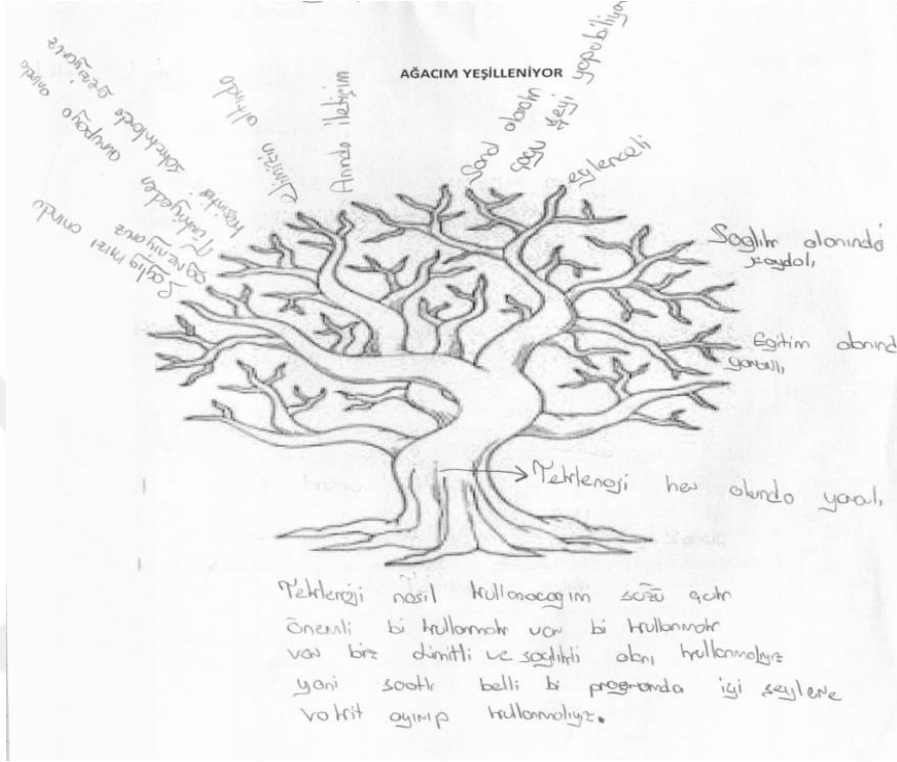 AĞACIM YEŞİLLENİYOR
Sağlığımızı anında
öğreniyoruz
Türkiyeden avrupaya anında
Elimizin altında
Anında iletişim
Sanal olarak
çoğu şeyi yapabiliyor
eylenceli
Sağlık alanında
faydalı
Eğitim alanınd
yararlı
Teknoloji her alanda yararlı
Teknoloji nasıl kullanacağım sözü çok
önemli bi kullanmak var bi kullanmak
var biz dimitli ve sağlıklı olanı kullanmalıyız
yani saatlı belli bi programda iyi şeylere
vakit ayırıp kullanmalıyız.